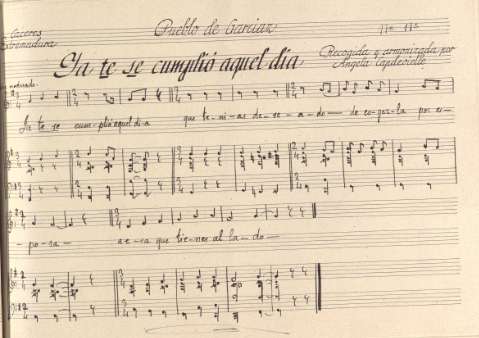 Cáceres
Extremadura
Pueblo de Garciaz
Ya te se cumplió aquel dia
Recogida y armonizada por
Angela Capdevielle
moderado
Ya te se cum-plió aquel dí-a que te-ni-as de-se-a-do- de co-ger-la por es-
-po-sa- a e-sa que tie-nes al la-do-